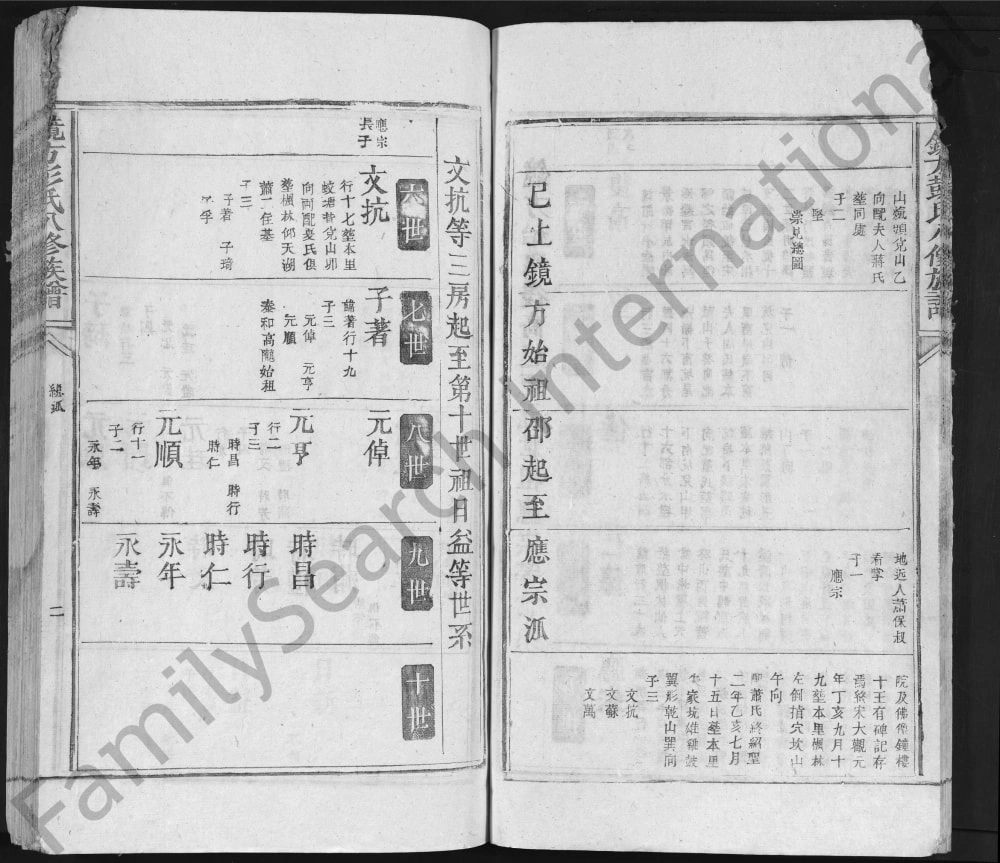 山巍頭兌山乙
向配夫人蔣氏
塟同處
子二
堅
崇見總圖
地远人蕭保叔
看掌
子一
應宗
院及佛僧鐘樓
十王有碑記存
焉終宋大觀元
年丁亥九月十
九塟本里楓林
左倒揹穴坎山
午向
配蕭氏終紹聖
二年乙亥七月
十五日塟本里
朱家坑雄雞鼓
翼形乾山巽向
子三
文抗
文蘇
文萬
已上鏡方始祖邵起至應宗派
文抗等三房起至第十世祖日益等世系
六世
七世
八世
九世
十世
應宗
長子
文抗
行十七塟本里
蛟塘背兌山卯
向向配夏氏俱
塟楓林仰天湖
蕭一在墓
子三
子著 子琦
子孚
子著
諱著行十九
子三
元倬 元亨
元順
泰和高隴始祖
元倬
元亨
行二
子三
時昌 時行
時仁
元順
行十一
子二
永年 永壽
時昌
時行
時仁
永年
永壽
鏡方彭氏八修族譜
總派
二
FamilySearch International